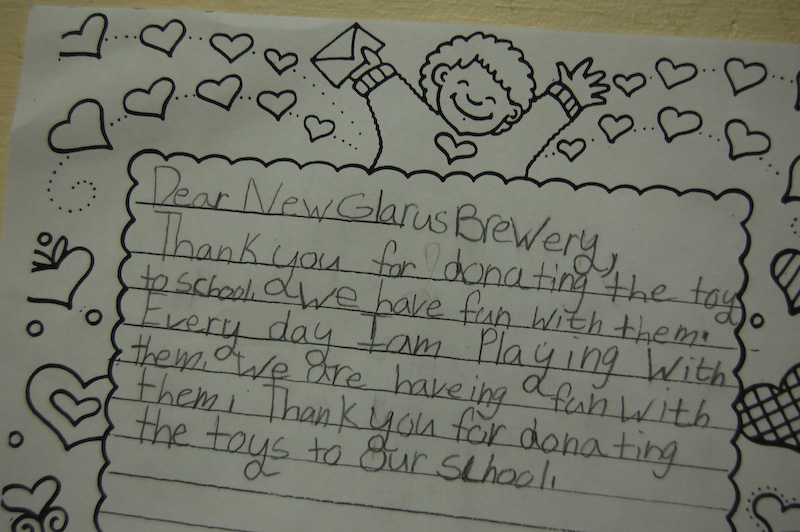 Dear New Glarus Brewery,
Thank you for donating the toy
to school. We have fun with them.
Every day I am Playing With
them. We are haveing fun With
them, Thank you for donating
the toys to our school.